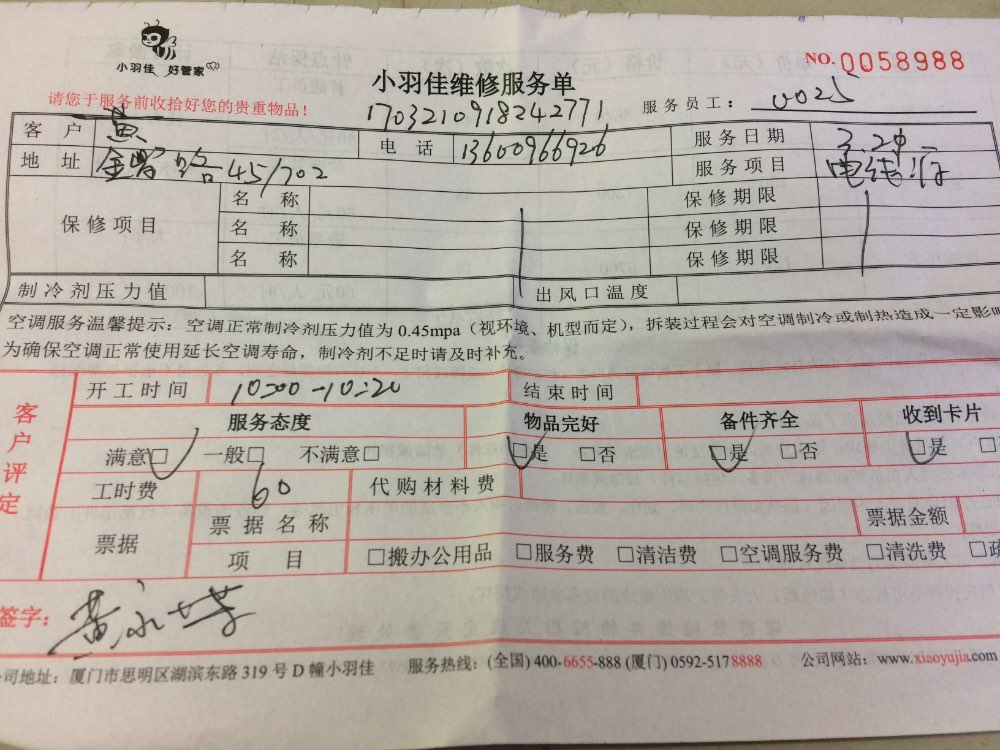 小羽佳 好管家
NO.0058988
小羽佳维修服务单
请您于服务前收拾好您的贵重物品！
1703210918242771
服务员工： 0025
客户 黄 电话 13600966926 服务日期 3.20
地址 金 路45/702 服务项目 电
保修项目 名称 保修期限
名称 保修期限
名称 保修期限
制冷剂压力值 出风口温度
空调服务温馨提示：空调正常制冷剂压力值为 0.45mpa（视环境、机型而定），拆装过程会对空调制冷或制热造成一定影响
为确保空调正常使用延长空调寿命，制冷剂不足时请及时补充。
客户评定
开工时间 10:00-10:20 结束时间
服务态度 物品完好 备件齐全 收到卡片
满意□ 一般□ 不满意□ □是 □否 □是 □否 □是 □
工时费 60 代购材料费
票据 票据名称 票据金额
项目 □搬办公用品 □服务费 □清洁费 □空调服务费 □清洗费 □疏
签字： 黄永芳
公司地址：厦门市思明区湖滨东路 319 号 D 幢小羽佳 服务热线：(全国) 400-6655-888 (厦门) 0592-5178888 公司网站：www.xiaoyujia.com